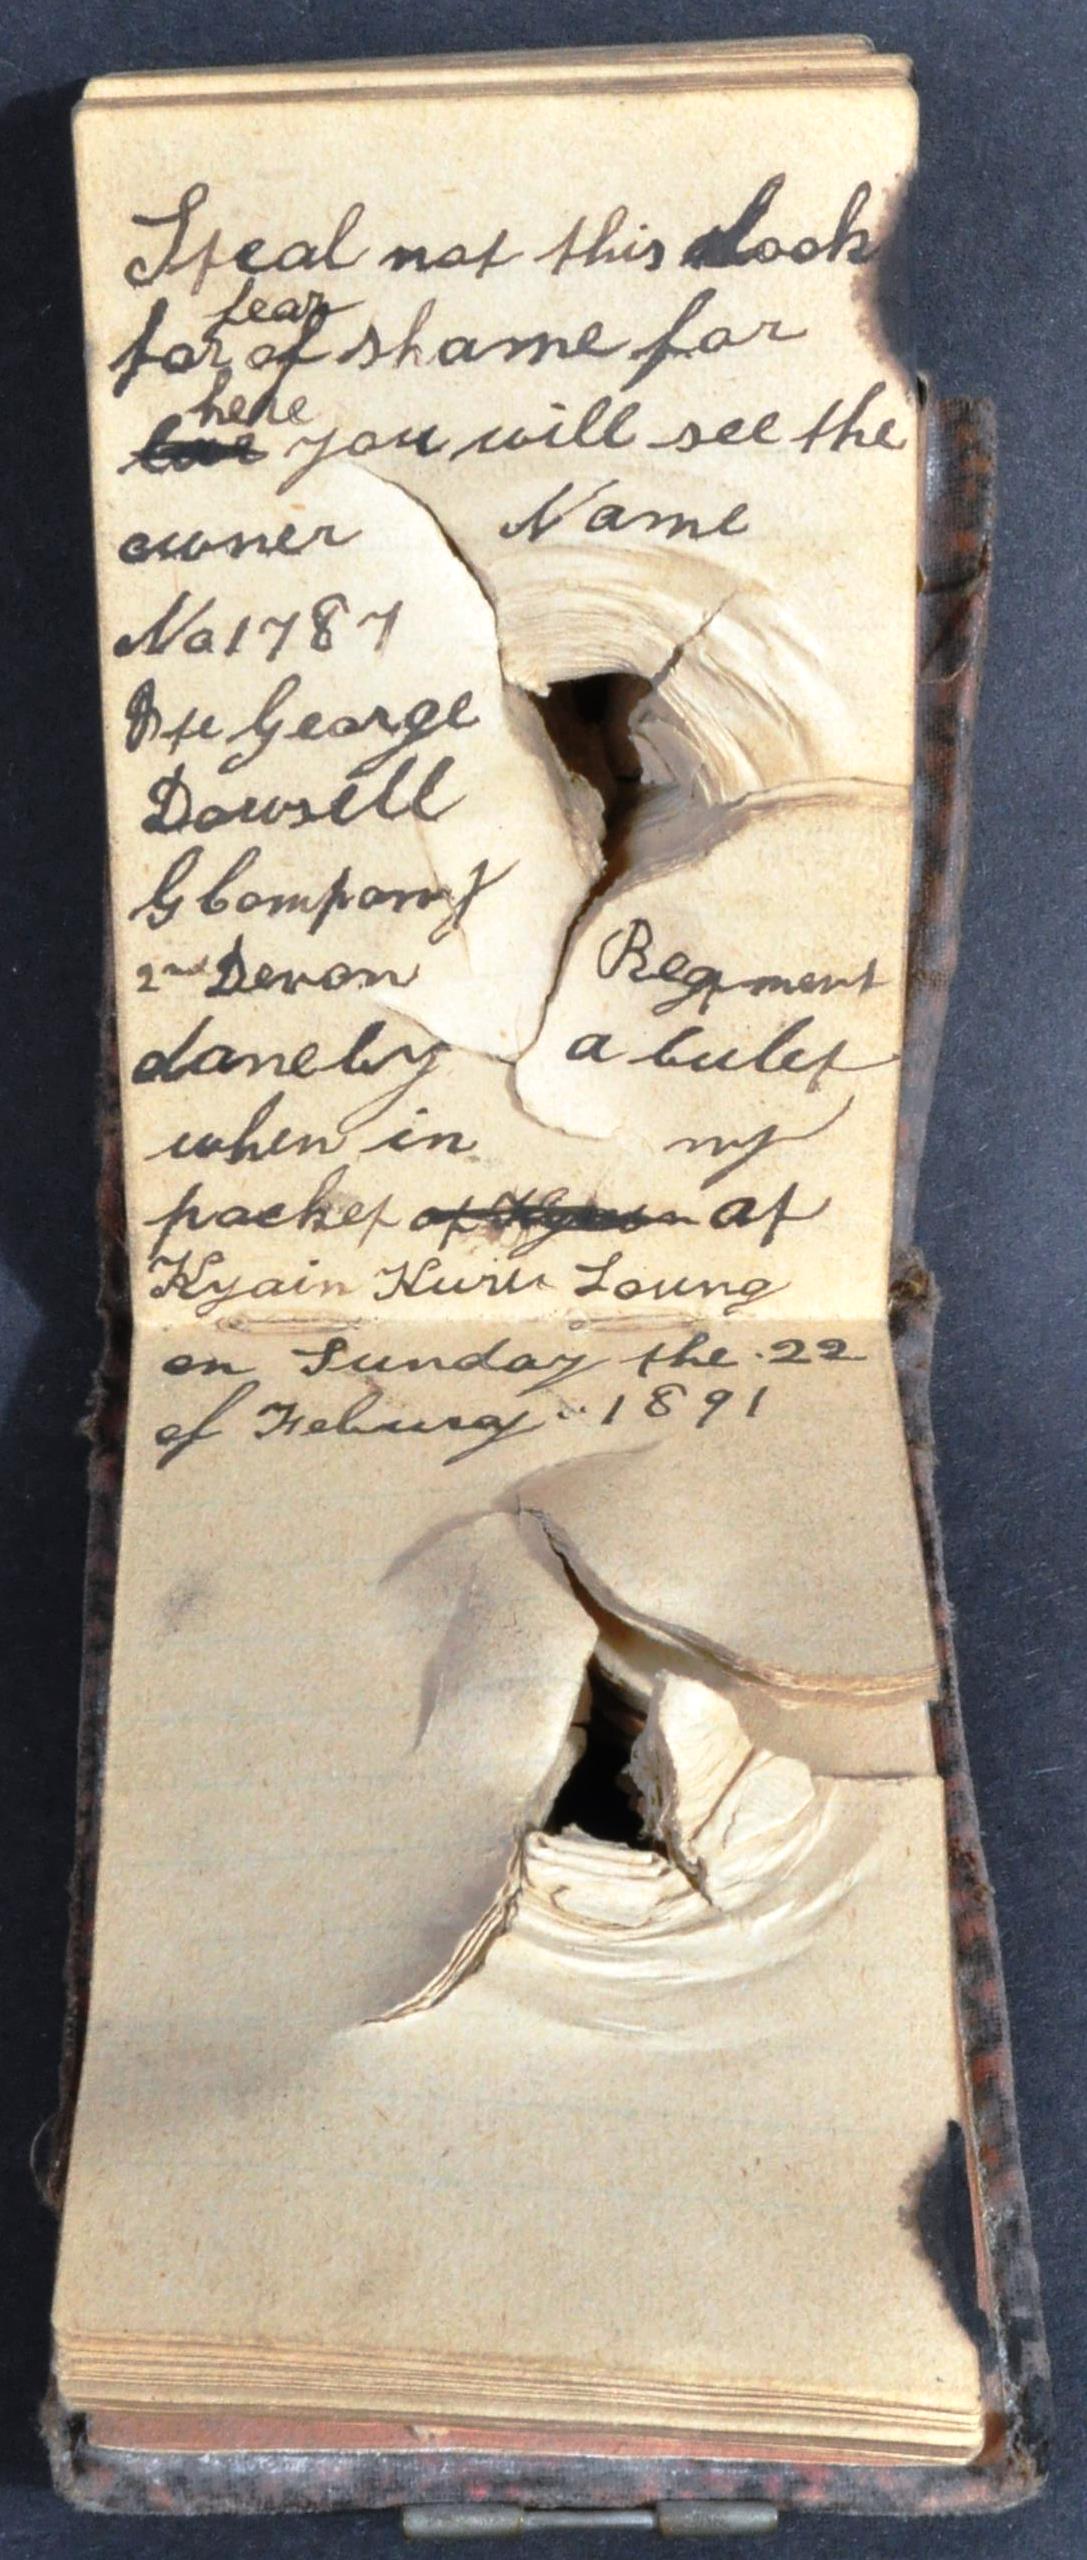 Steal not this book
for fear of shame for
here you will see the
owner Name
No 1787
Pte George
Dowsell
G Company
2nd Devon Regment
done by a bulet
when in my
pocket at
Kyain Kurn Loung
on Sunday the 22
of Feburay 1891